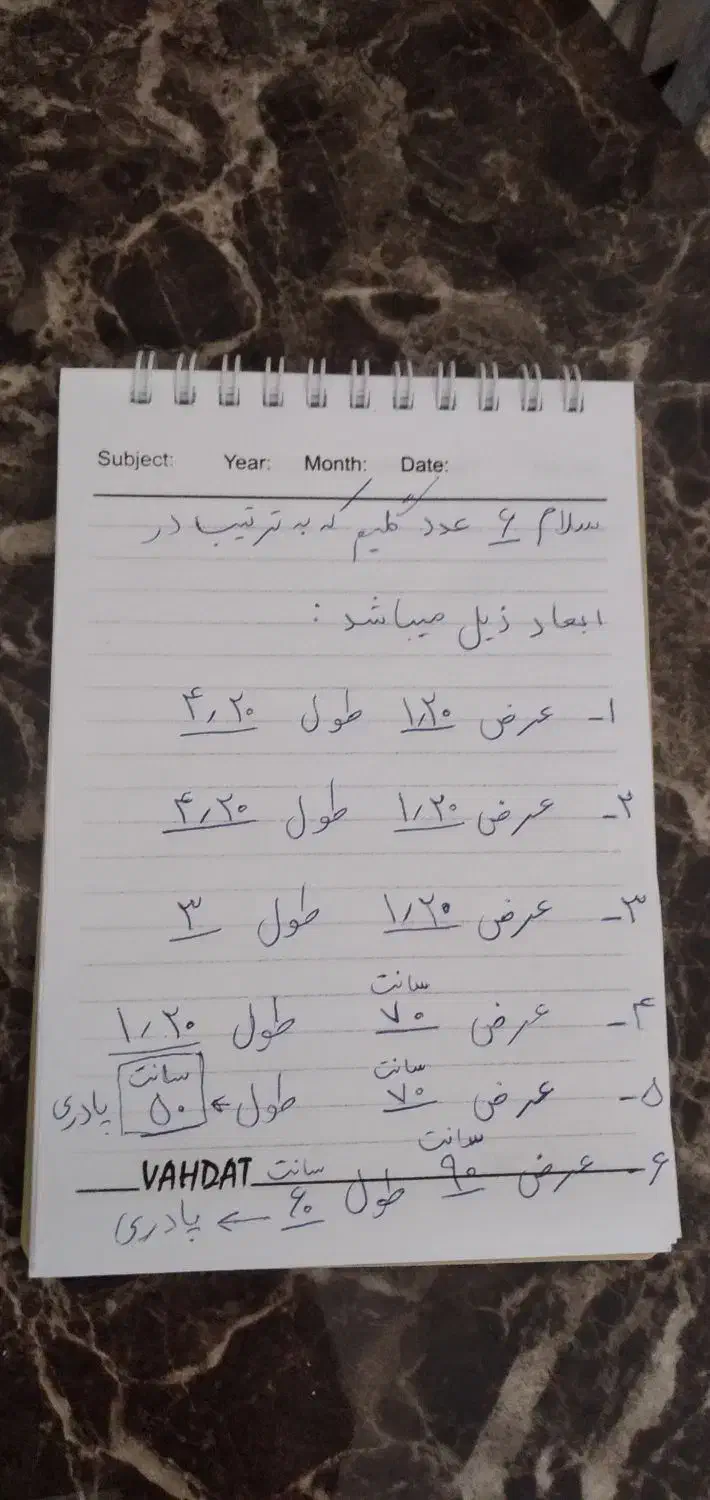 Subject: Year: Month: Date:
سلام ۶ عدد گلیم که به ترتیب در
ابعاد ذیل میباشد :
۱- عرض ۱٫۲۰ طول ۴٫۲۰
۲- عرض ۱٫۲۰ طول ۴٫۲۰
۳- عرض ۱٫۲۰ طول ۳
۴- عرض ۷۰ سانت طول ۱٫۲۰
۵- عرض ۷۰ سانت طول ← ۵۰ سانت پادری
۶- عرض ۹۰ سانت طول ۶۰ سانت ← پادری
VAHDAT